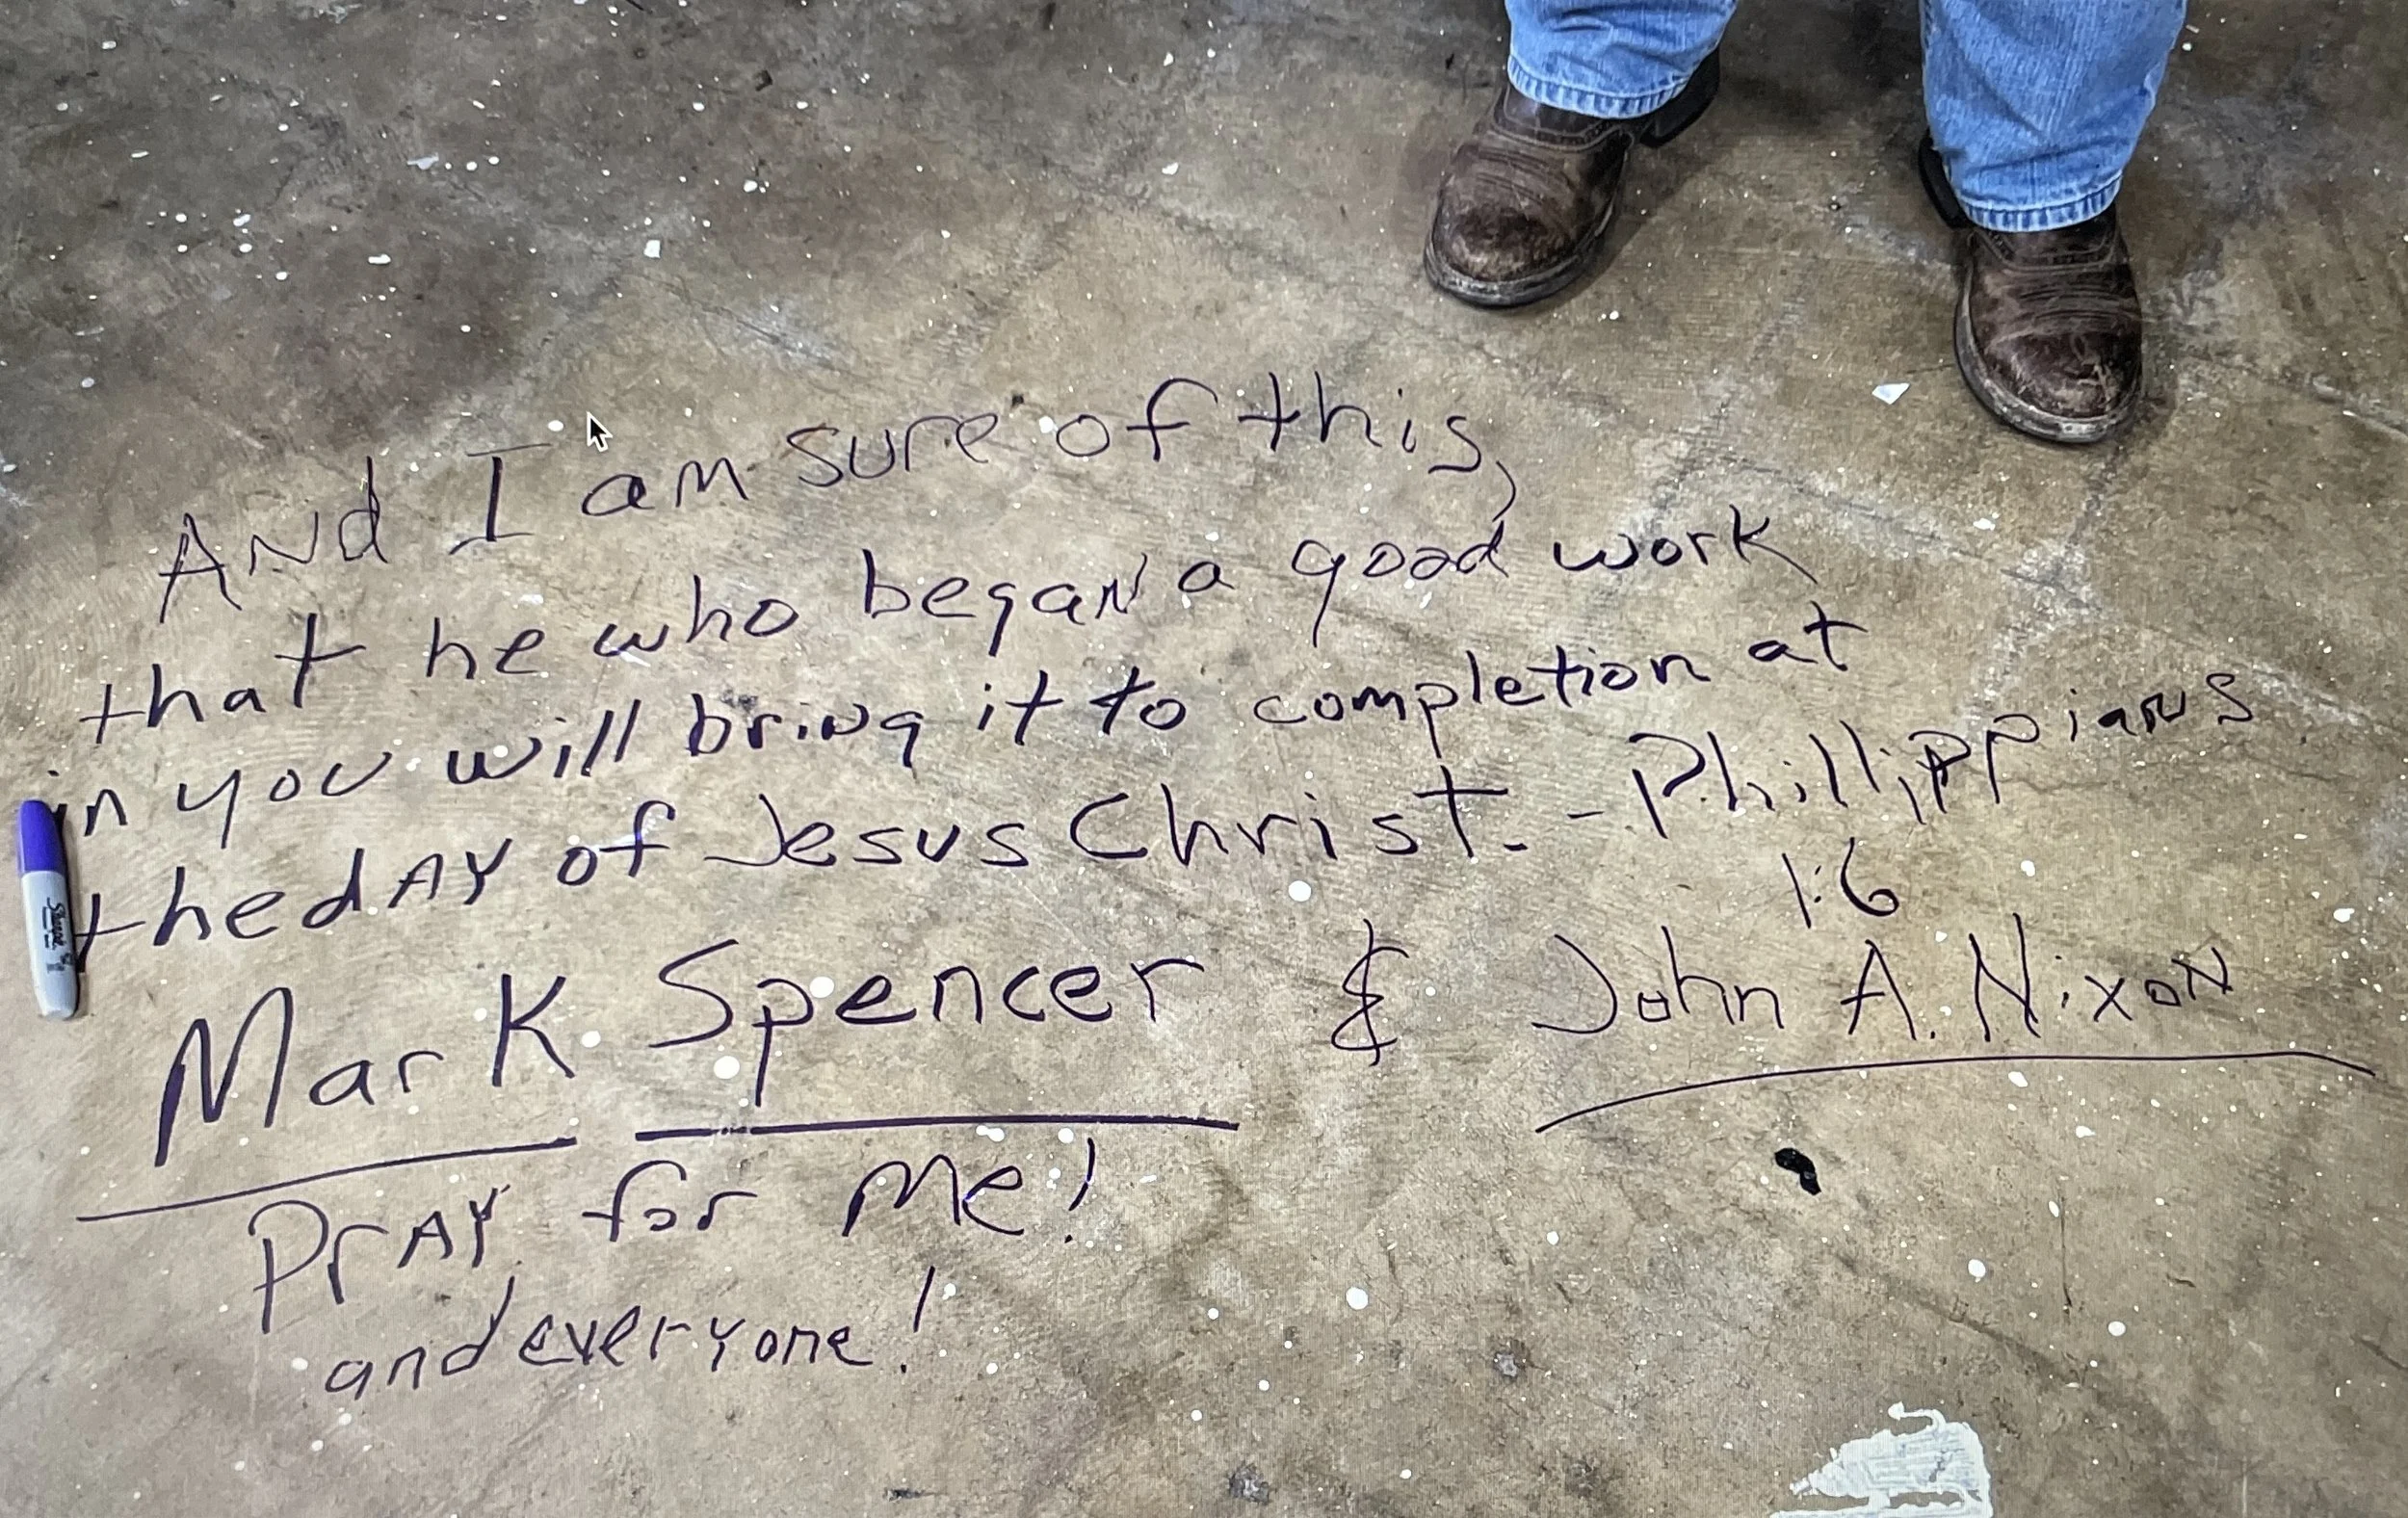 And I am sure of this,
that he who began a good work
in you will bring it to completion at
the day of Jesus Christ. - Phillippians
1:6
Mark Spencer & John A. Nixon
Pray for me!
and everyone!
Sharpie